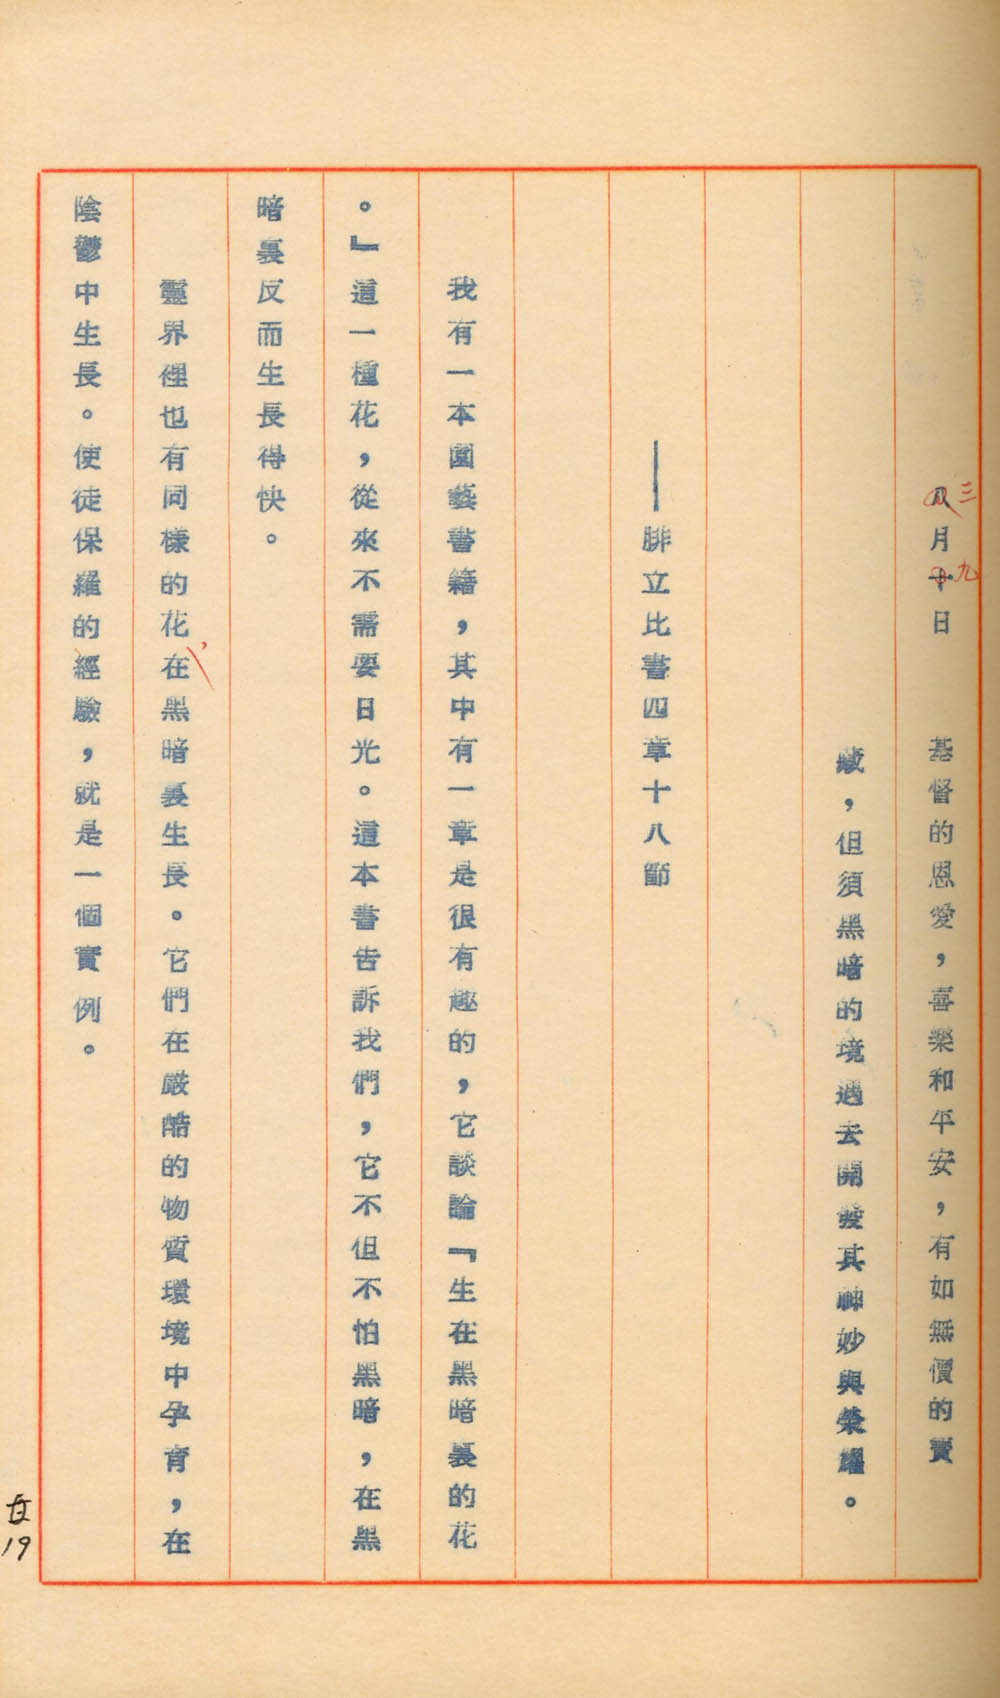 八月十日　基督的恩愛，喜樂和平安，有如無價的寶
三
九
藏，但須黑暗的境遇去開發其神妙與榮耀。
——腓立比書四章十八節
我有一本園藝書籍，其中有一章是很有趣的，它談論『生在黑暗裏的花
。』這一種花，從來不需要日光。這本書告訴我們，它不但不怕黑暗，在黑
暗裏反而生長得快。
靈界裡也有同樣的花在黑暗裏生長。它們在嚴酷的物質環境中孕育，在
，
陰鬱中生長。使徒保羅的經驗，就是一個實例。
19